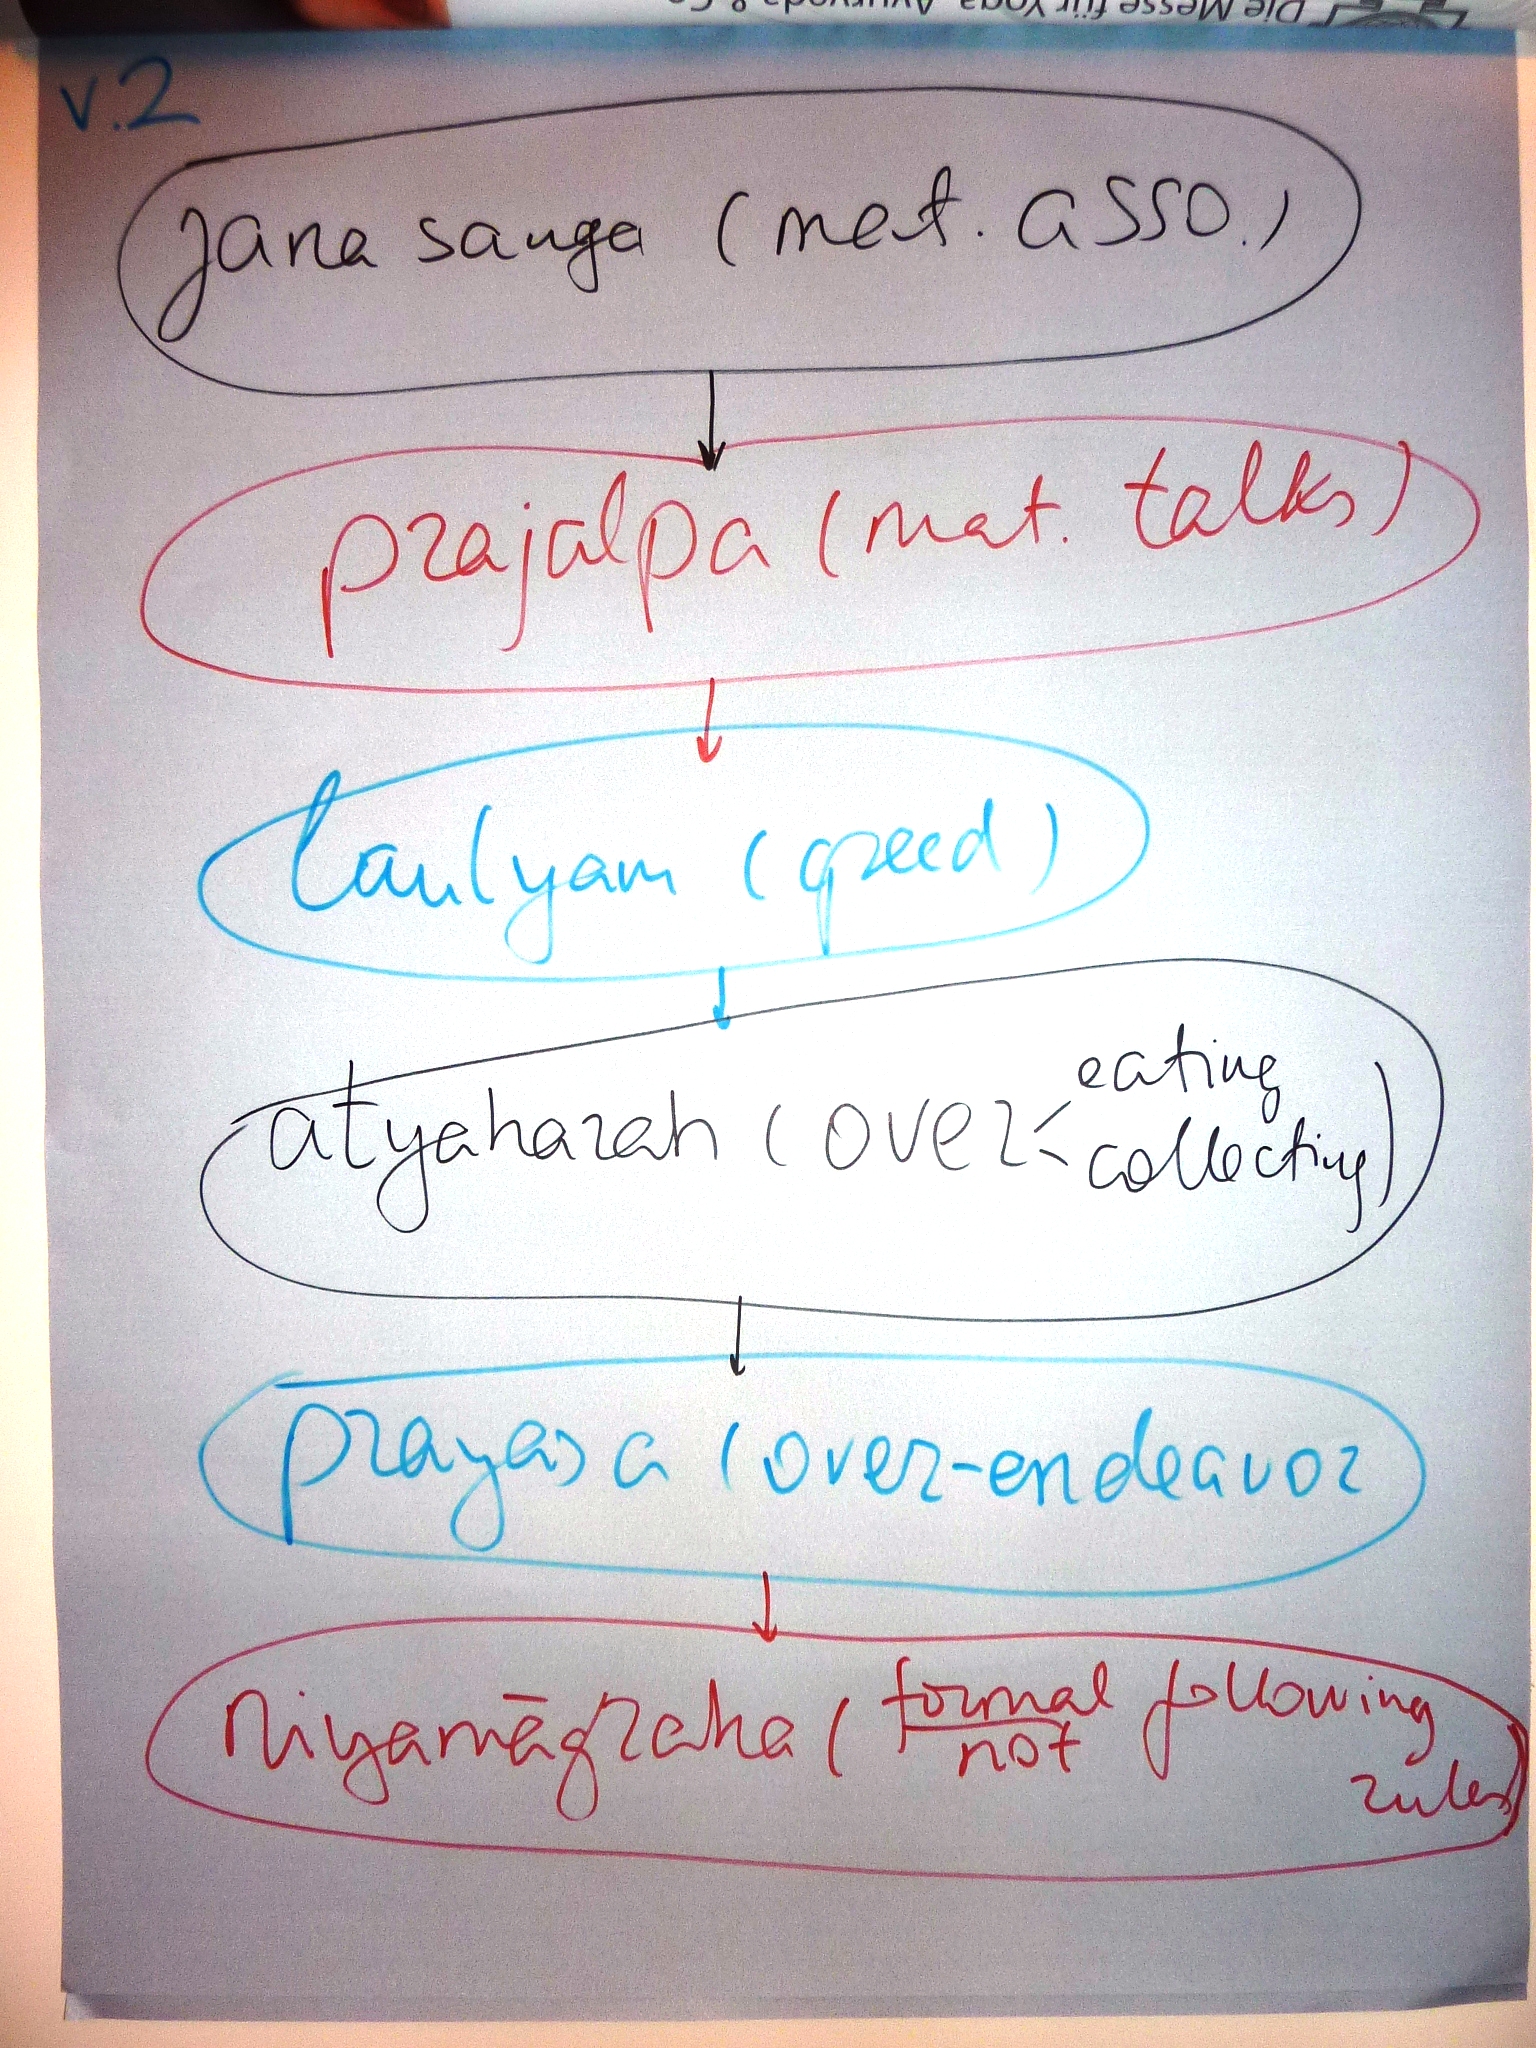 Die Messe für Yoga, Ayurveda & Co
v.2
jana sanga (mat. asso.)
prajalpa (mat. talks)
laulyam (greed)
atyaharah (over < eating
collecting)
prayasa (over-endeavor
niyamāgraha (formal following
not
rules)